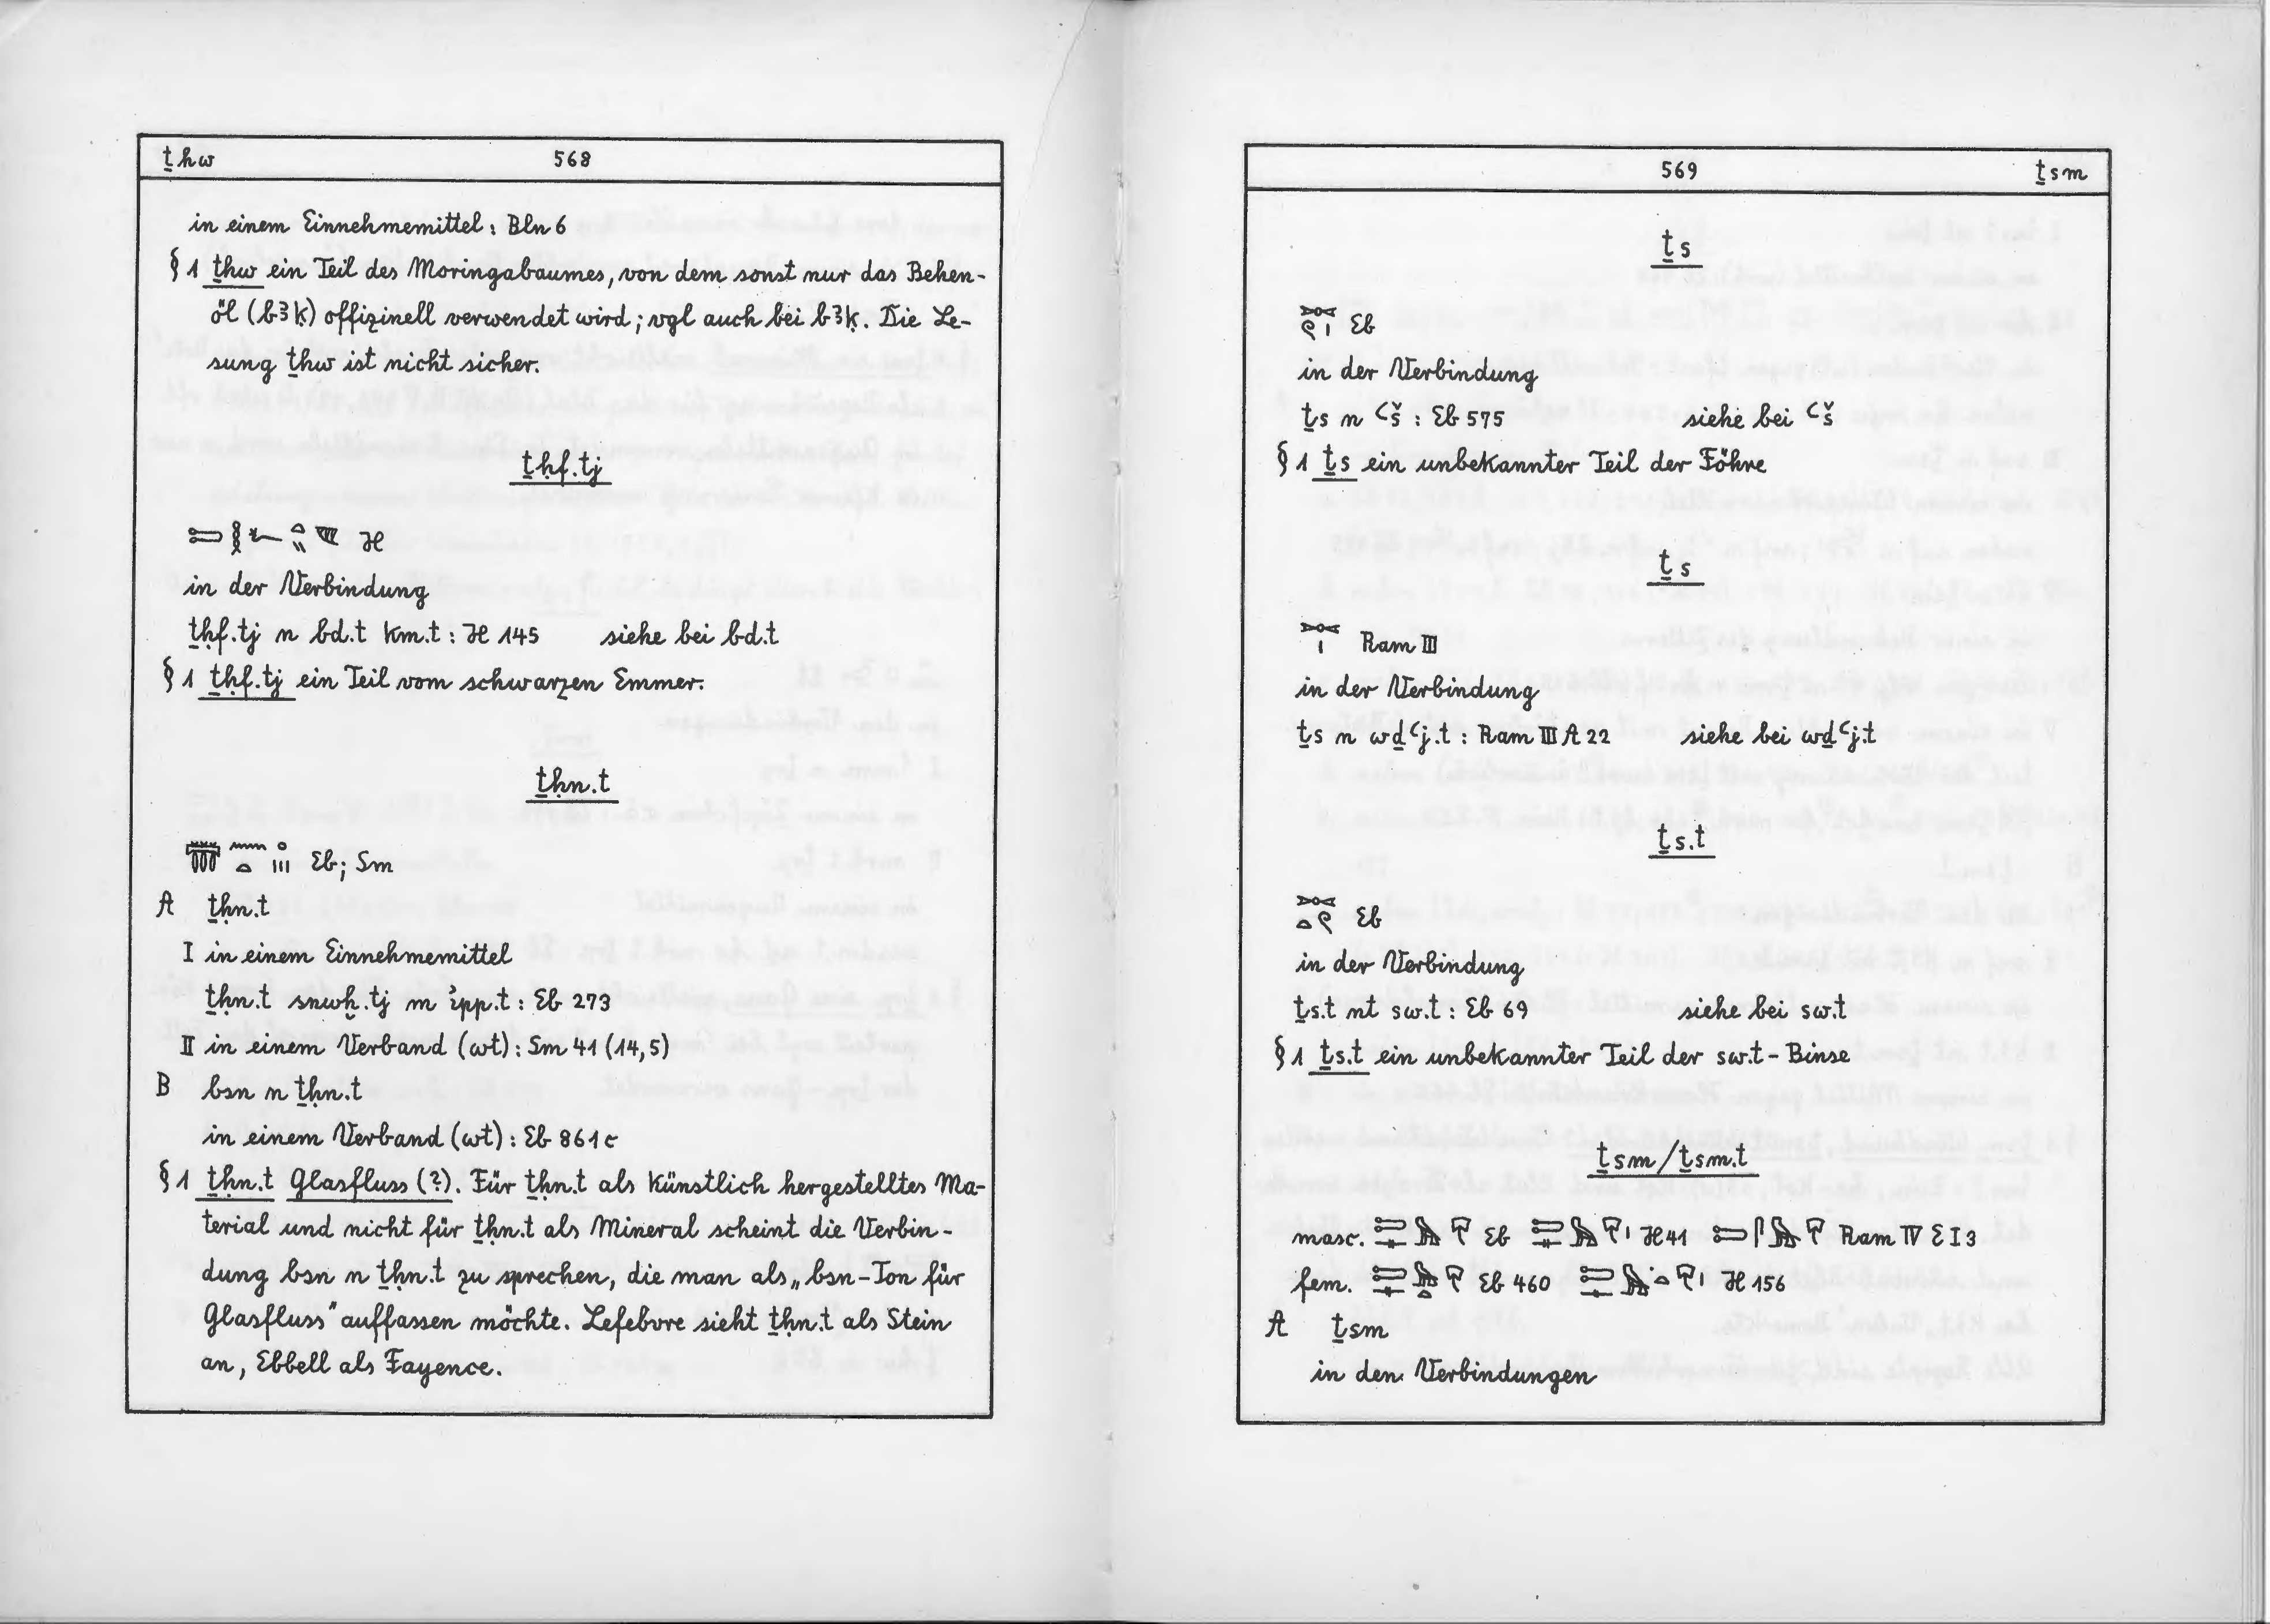 ṯhw 568
in einem Einnehmemittel: Bln 6
§ 1 ṯhw ein Teil des Moringabaumes, von dem sonst nur das Behen-
öl (bꜣḳ) offizinell verwendet wird; vgl auch bei bꜣḳ. Die Le-
sung ṯhw ist nicht sicher.
ṯḥf.tj
H
in der Verbindung
ṯḥf.tj n bd.t km.t: H 145 siehe bei bd.t
§ 1 ṯḥf.tj ein Teil vom schwarzen Emmer.
ṯḥn.t
Eb; Sm
A ṯḥn.t
I in einem Einnehmemittel
ṯḥn.t snwḫ.tj m ἰpp.t: Eb 273
II in einem Verband (wt): Sm 41 (14,5)
B bsn n ṯḥn.t
in einem Verband (wt): Eb 861 c
§ 1 ṯḥn.t Glasfluss (?). Für ṯḥn.t als künstlich hergestelltes Ma-
terial und nicht für ṯḥn.t als Mineral scheint die Verbin-
dung bsn n ṯḥn.t zu sprechen, die man als „bsn-Ton für
Glasfluss" auffassen möchte. Lefebvre sieht ṯḥn.t als Stein
an, Ebbell als Fayence.
569 ṯsm
ṯs
Eb
in der Verbindung
ṯs n ꜥš : Eb 575 siehe bei ꜥš
§ 1 ṯs ein unbekannter Teil der Föhre
ṯs
Ram III
in der Verbindung
ṯs n wḏꜥj.t : Ram III A 22 siehe bei wḏꜥj.t
ṯs.t
Eb
in der Verbindung
ṯs.t nt sw.t : Eb 69 siehe bei sw.t
§ 1 ṯs.t ein unbekannter Teil der sw.t-Binse
ṯsm/ṯsm.t
masc. Eb H 41 Ram IV E I 3
fem. Eb 460 H 156
A ṯsm
in den Verbindungen